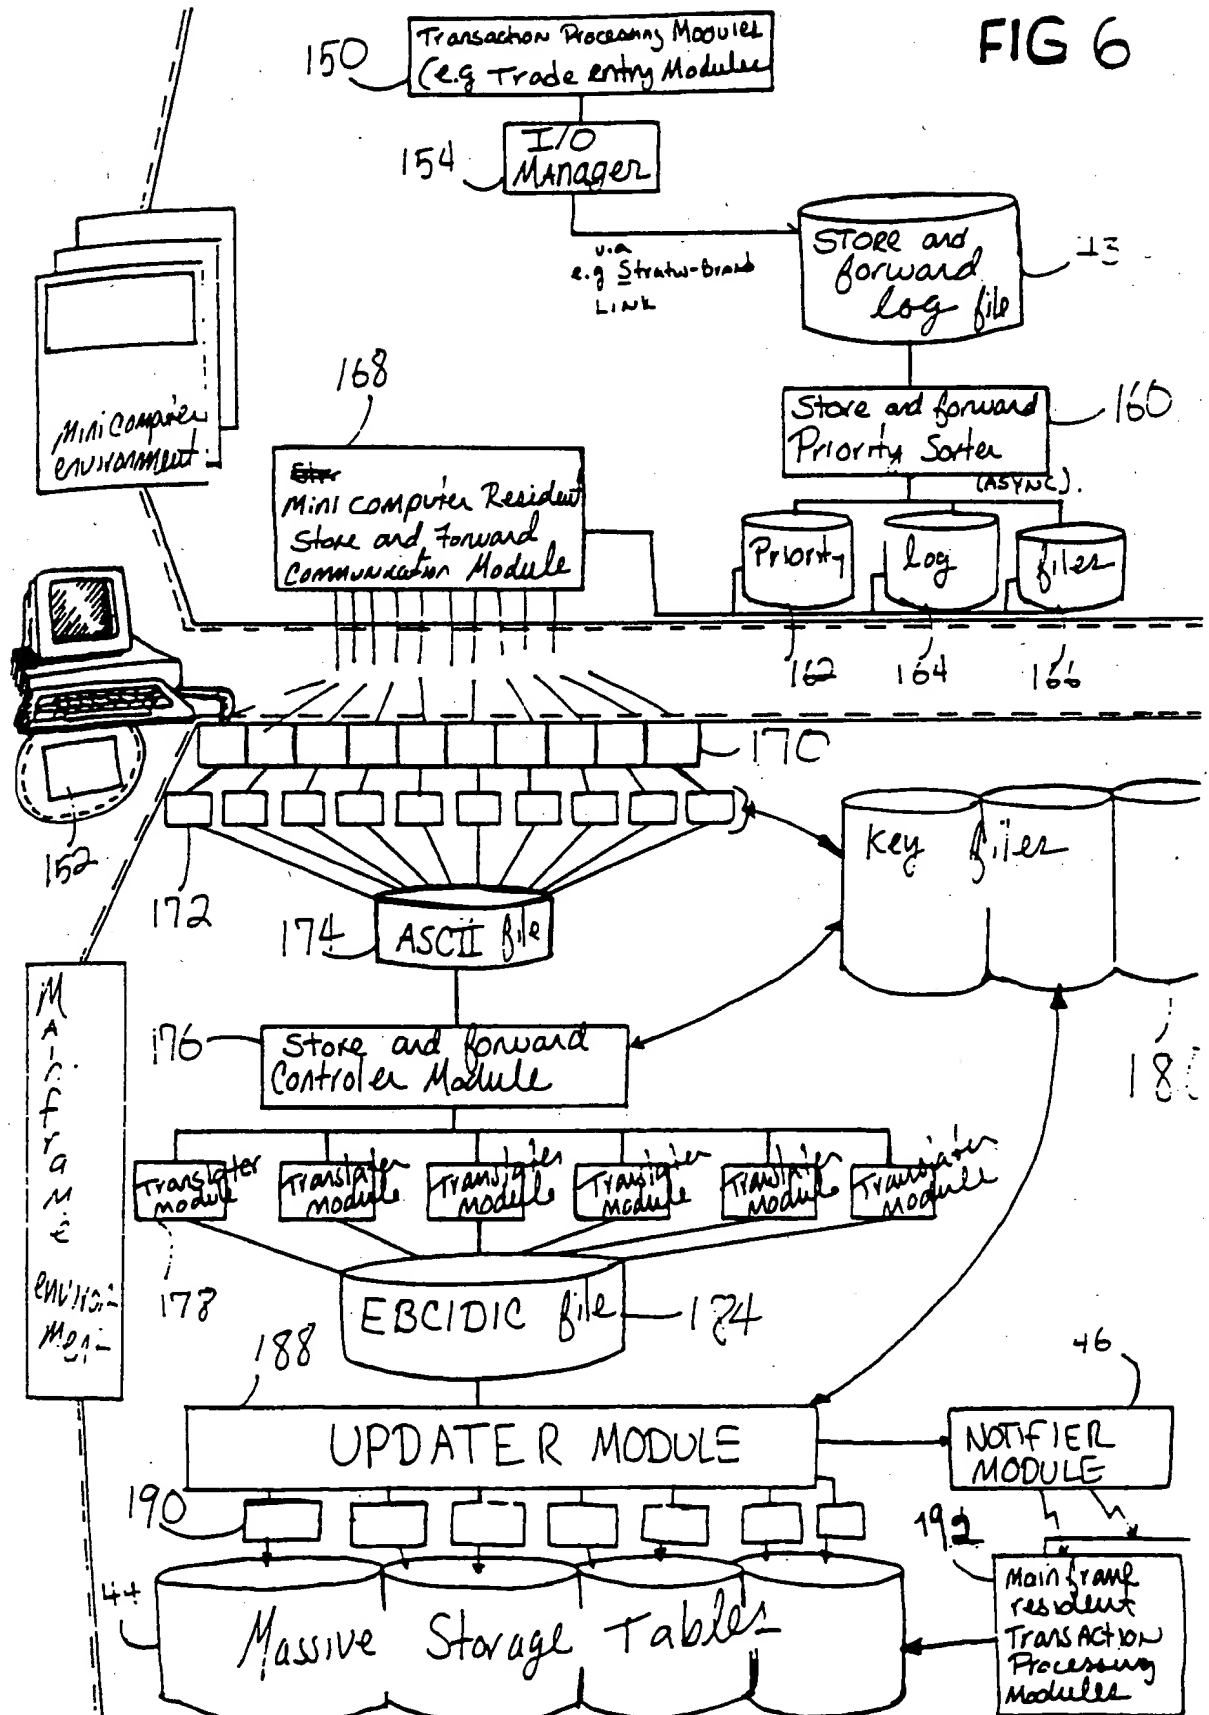 FIG 6
150
Transaction Processing Modules
(e.g Trade entry Modules
154
I/O
Manager
via
e.g Stratus-Brand
LINK
STORE and
forward
log file
13
168
Mini computer Resident
Store and Forward
Communication Module
Store and forward
Priority Sorter
160
(ASYNC).
Priority
log
files
162
164
166
Mini Computer
environment
152
170
172
174
ASCII file
Key files
18
176
Store and forward
Controler Module
Mainframe
Translater
module
Translater
module
Translater
module
Translater
module
Translater
module
Translater
module
178
EBCIDIC file
184
188
UPDATER MODULE
46
NOTIFIER
MODULE
190
192
44
Massive Storage Tables
Mainframe
resident
TransACTION
Processing
Modules